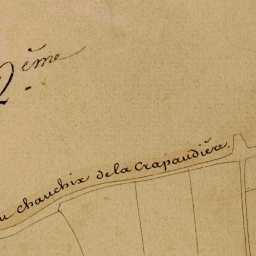 2ème
u chauchix de la Crapaudière.